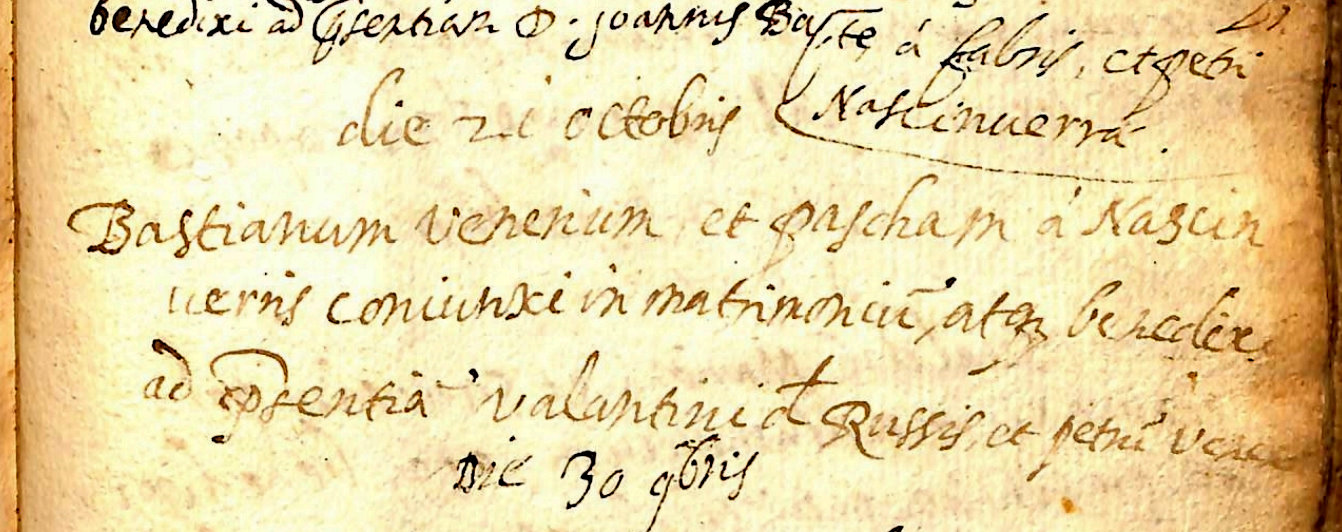 benedixi ad psentiam D. Joannis Bapte, á fabris, et petri
die 21 octobris Nascinuerra.
Bastianum venerium et pascham á Nascin
uerris coniunxi in matrimoniū, atq benedixi
ad psentiā valantini d Russis, et petrū
Die 30 9bris